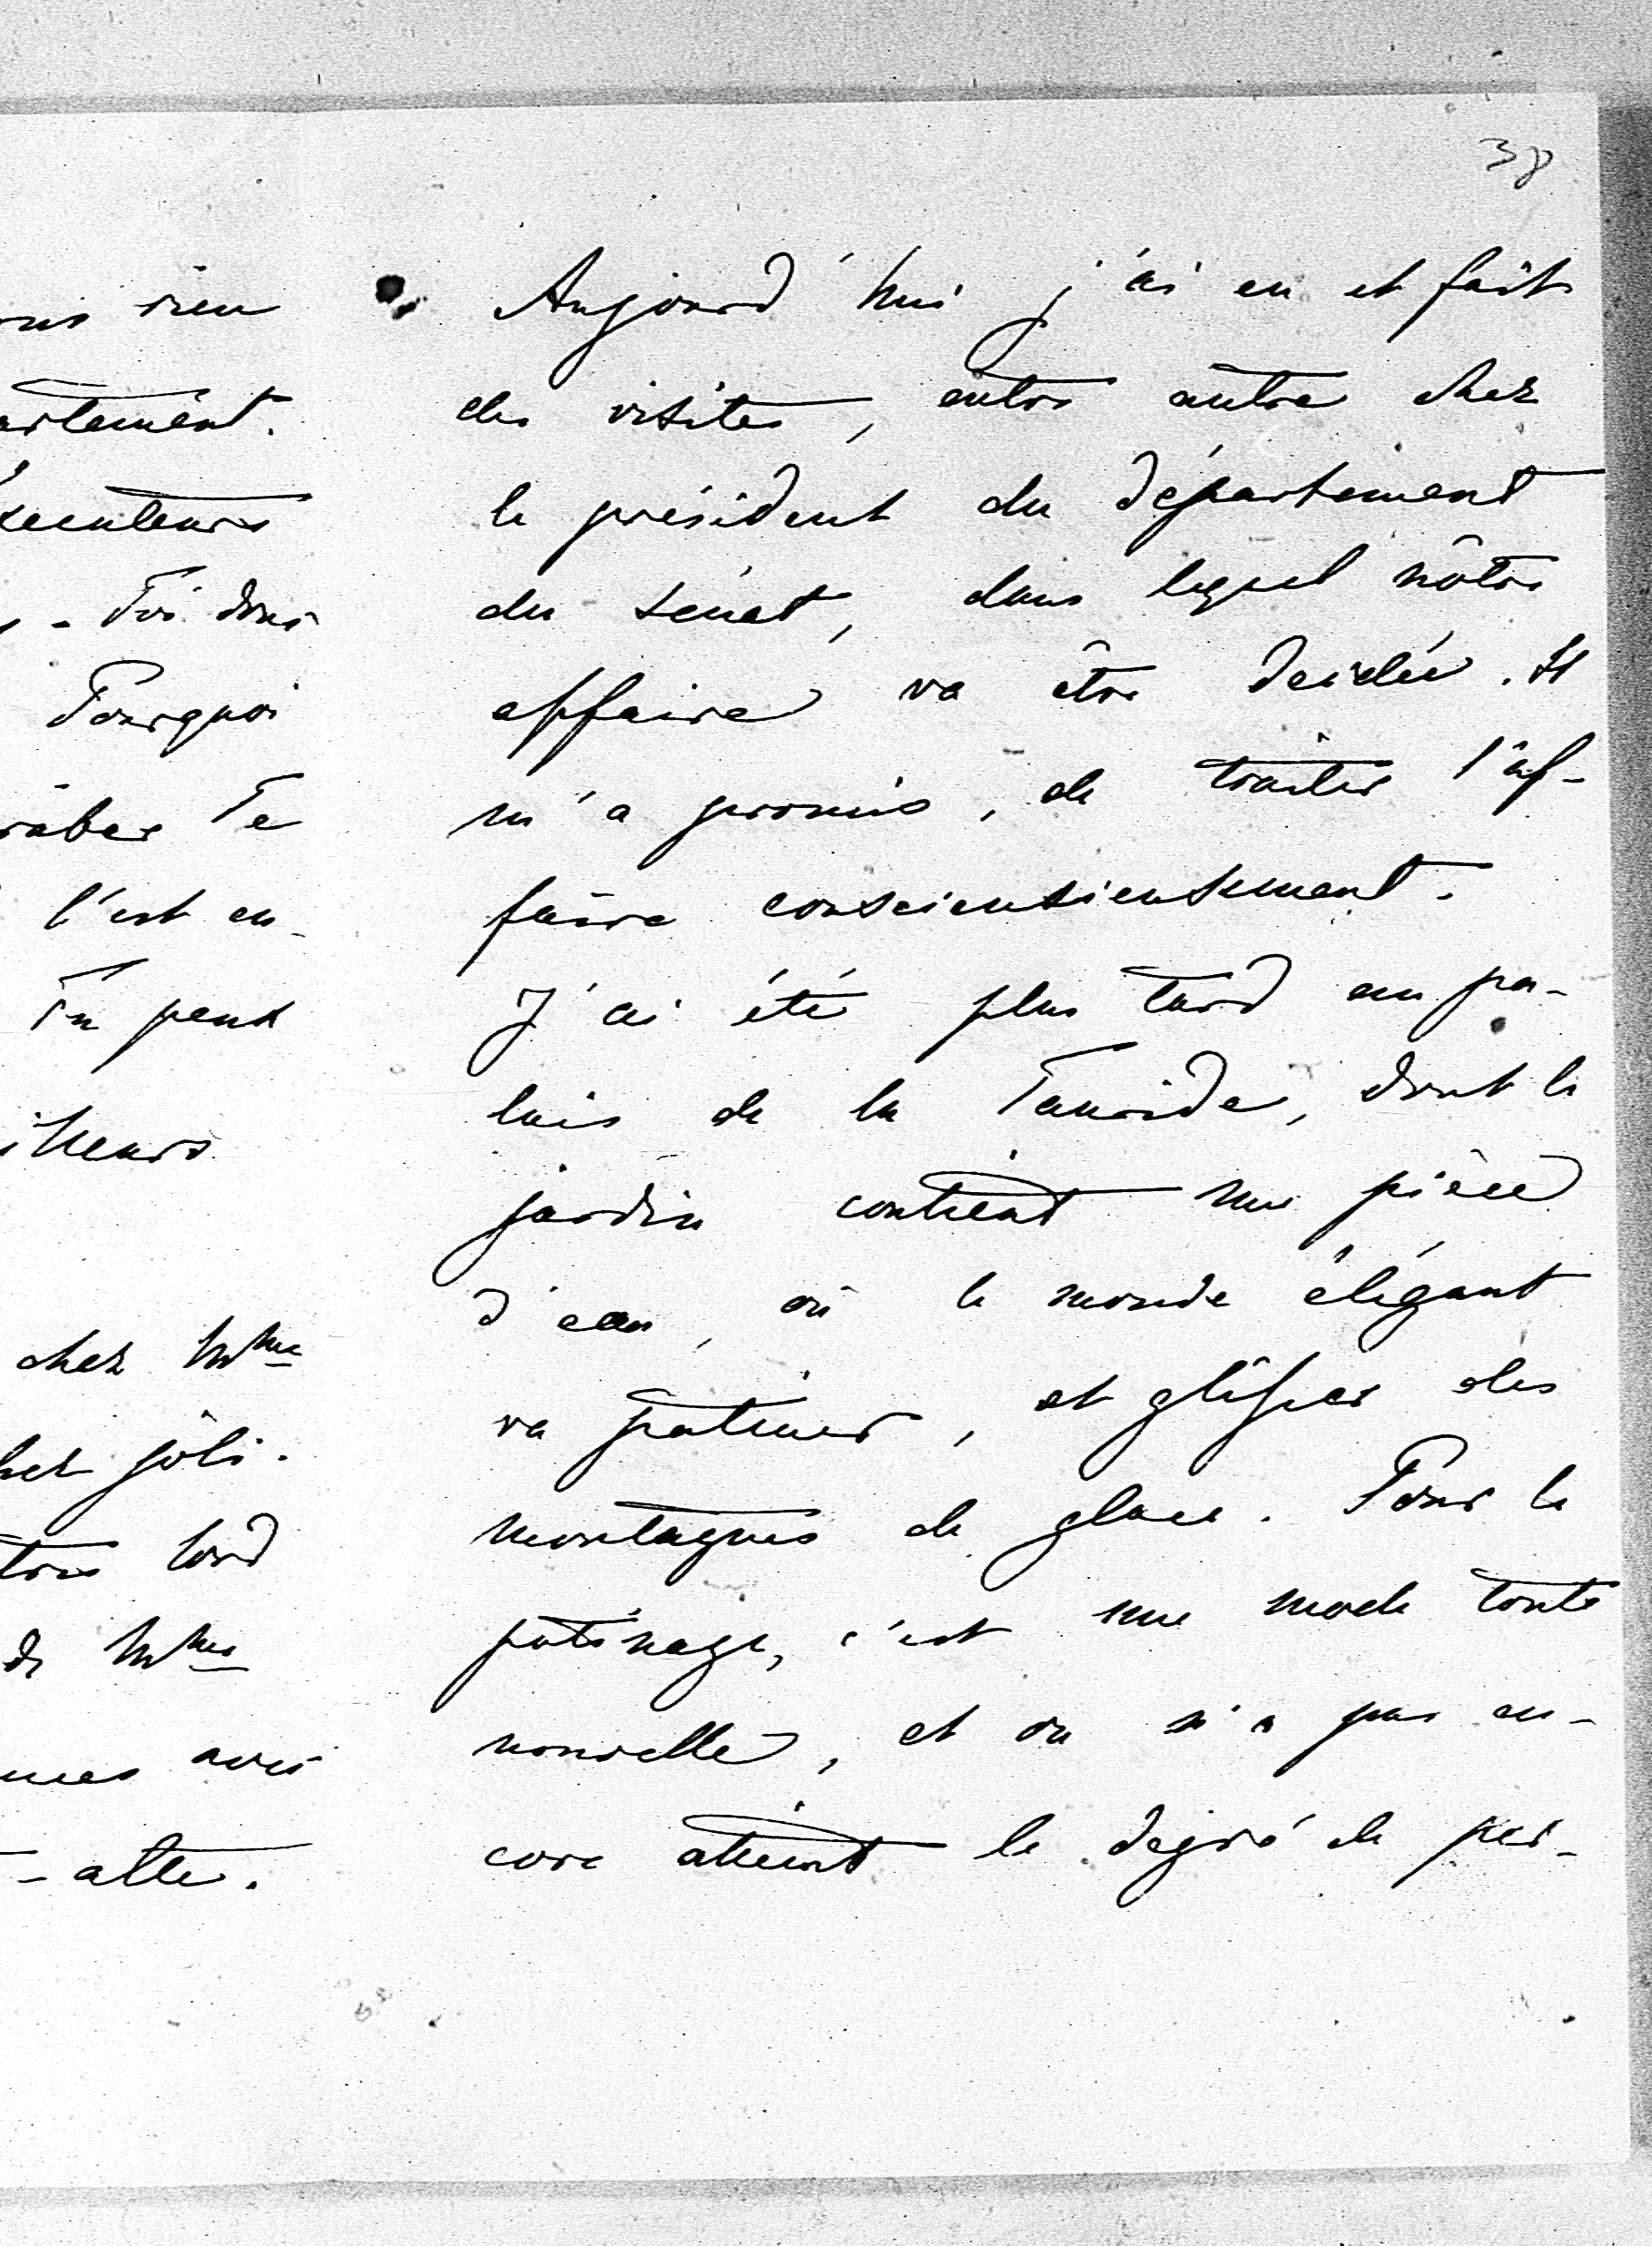 38
rien
artement.
xecuteurs
- Toi donc
Pourquoi
Te
l'est en-
Tu peux
illeurs
chez Mme
joli.
lord
de Mme
avis
- atte.
Aujourd'hui j'ai eu et fait
des visites, entre autre chez
le président du département
du sénat, dans lequel nôtre
affaire va être decidée. Il
m'a promis, de traiter l'af-
faire consciensieusement.
J'ai été plus tard au pa-
lais de la Tauride, dont le
jardin contient une pièce
d'eau, où le monde élégant
va patiner, et glisser des
montagnes de glace. Pour le
patinage, c'est une mode toute
nouvelle, et on n'a pas en-
core atteint le degré de per-